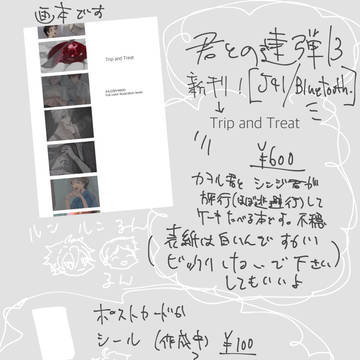 画本です
君との連弾13
新刊！[J41/Bluetooth.]
↓
Trip and Treat
Trip and Treat
KAWORU×SHINJI
Full color illustration book
¥600
カヲル君とシンジ君が
旅行(ほぼ逃避行)して
ケーキたべる本です。不穏
(表紙は白いんですがい
ビックリしないで下さい)
してもいいよ
ルンルン
るん
るん
ポストカードか
シール(作成中)¥100